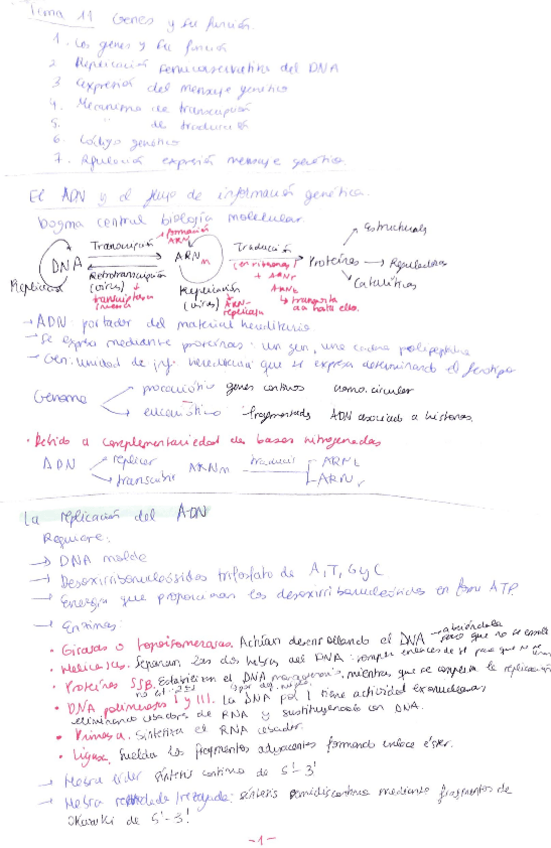 Tema 11 Genes y su función.
1. Los genes y su función
2. Replicación semiconservativa del DNA
3. Expresión del mensaje genético
4. Mecanismo de transcripción
5. " de traducción
6. Código genético
7. Regulación expresión mensaje genético.
El ADN y el flujo de información genética.
Dogma central biología molecular.
Transcripción formación ARNm
Traducción (en ribosomas) + ARNr ARNt transporta aa hasta ellos.
DNA ARNm Proteínas Estructurales Reguladoras Catalíticas
Replicación
Retrotranscripción (virus) + transcriptasa inversa
Replicación (virus) ARN-replicasa
→ ADN: portador del material hereditario.
→ Se expresa mediante proteínas: un gen, una cadena polipeptídica
→ Gen: unidad de inf. hereditaria que se expresa determinando el fenotipo
Genoma
procariótico genes continuos cromo. circular
eucariótico fragmentados ADN asociado a histonas.
• Debido a complementariedad de bases nitrogenadas
ADN replicar
transcribir ARNm traducir ARNt
ARNr
La replicación del ADN
Requiere:
→ DNA molde
→ Desoxirribonucleósidos trifosfato de A, T, G y C
→ Energía que proporcionan los desoxirribonucleósidos en forma ATP.
→ Enzimas:
• Girasas o topoisomerasas. Actúan desenrollando el DNA abriéndola para que no se enrolle
• Helicasas. Separan las dos hebras del DNA: romper enlaces de H para que se
• Proteínas SSB. Estabilizan el DNA monocatenario, mientras que se completa la replicación
• DNA polimerasa I y III. La DNA pol I tiene actividad exonucleasa
eliminando cebadores de RNA y sustituyéndolo con DNA.
• Primasa. Sintetiza el RNA cebador.
• Ligasa. Suelda los fragmentos adyacentes formando enlace éster.
→ Hebra líder síntesis continua de 5'-3'
→ Hebra retardada/rezagada: síntesis semidiscontinua mediante fragmentos de
Okazaki de 5'-3'!
-1-